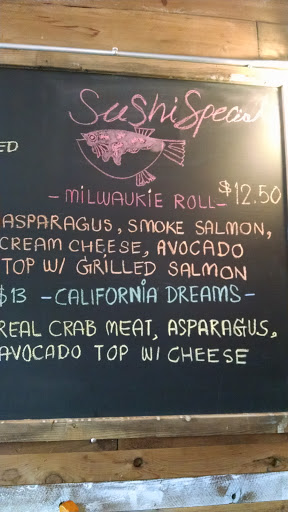 Sushi Special
ED
- MILWAUKIE ROLL - $12.50
ASPARAGUS, SMOKE SALMON,
CREAM CHEESE, AVOCADO
TOP W/ GRILLED SALMON
$13 - CALIFORNIA DREAMS -
REAL CRAB MEAT, ASPARAGUS,
AVOCADO TOP W/ CHEESE